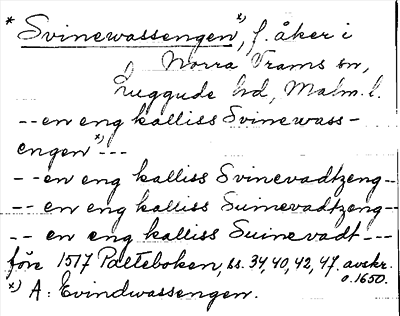 * Svinewassengen*), f. åker i
Norra Vrams sn,
Luggude hd, Malm. l.
-- en eng kalliss Svinewass-
engen*) ---
-- en eng kalliss Svinevadtzeng --
-- en eng kalliss Suinevadtzeng --
-- en eng kalliss Suinevadt ---
före 1517 Palteboken, ss. 34, 40, 42, 47. avskr.
o. 1650.
*) A: Evindwassengen.